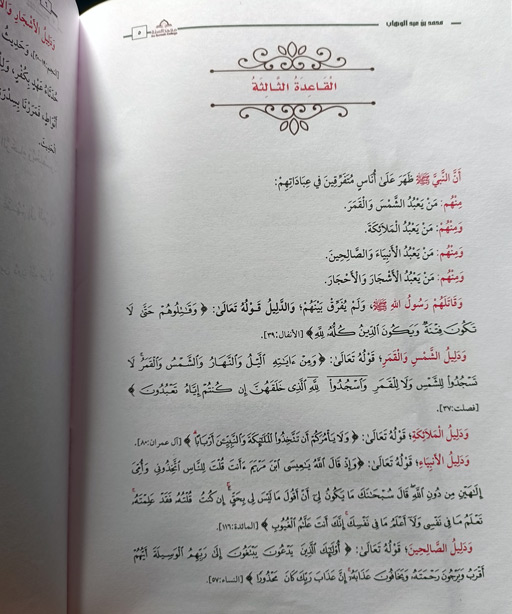 محمد بن عبد الوهاب
٥
القَاعِدَةُ الثَّالِثَةُ
أَنَّ النَّبِيَّ ﷺ ظَهَرَ عَلَىٰ أُنَاسٍ مُتَفَرِّقِينَ فِي عِبَادَاتِهِمْ:
مِنْهُم: مَنْ يَعْبُدُ الشَّمْسَ وَالْقَمَرَ.
وَمِنْهُم: مَنْ يَعْبُدُ الْمَلَائِكَةَ.
وَمِنْهُم: مَنْ يَعْبُدُ الْأَنْبِيَاءَ وَالصَّالِحِينَ.
وَمِنْهُم: مَنْ يَعْبُدُ الْأَشْجَارَ وَالْأَحْجَارَ.
وَقَاتَلَهُمْ رَسُولُ اللهِ ﷺ، وَلَمْ يُفَرِّقْ بَيْنَهُمْ؛ وَالدَّلِيلُ قَوْلُهُ تَعَالَىٰ: ﴿ وَقَٰتِلُوهُمْ حَتَّىٰ لَا
تَكُونَ فِتْنَةٌ وَيَكُونَ الدِّينُ كُلُّهُ لِلَّهِ ﴾ [الأنفال:٣٩].
وَدَلِيلُ الشَّمْسِ وَالْقَمَرِ؛ قَوْلُهُ تَعَالَىٰ: ﴿ وَمِنْ ءَايَٰتِهِ الَّيْلُ وَالنَّهَارُ وَالشَّمْسُ وَالْقَمَرُ لَا
تَسْجُدُوا لِلشَّمْسِ وَلَا لِلْقَمَرِ وَاسْجُدُوا لِلَّهِ الَّذِي خَلَقَهُنَّ إِن كُنتُمْ إِيَّاهُ تَعْبُدُونَ ﴾
[فصلت:٣٧].
وَدَلِيلُ الْمَلَائِكَةِ؛ قَوْلُهُ تَعَالَىٰ: ﴿ وَلَا يَأْمُرَكُمْ أَن تَتَّخِذُوا الْمَلَٰئِكَةَ وَالنَّبِيِّـۧنَ أَرْبَابًا ﴾ [آل عمران:٨٠].
وَدَلِيلُ الْأَنْبِيَاءِ؛ قَوْلُهُ تَعَالَىٰ: ﴿ وَإِذْ قَالَ اللَّهُ يَٰعِيسَى ابْنَ مَرْيَمَ ءَأَنتَ قُلْتَ لِلنَّاسِ اتَّخِذُونِي وَأُمِّيَ
إِلَٰهَيْنِ مِن دُونِ اللَّهِ قَالَ سُبْحَٰنَكَ مَا يَكُونُ لِي أَنْ أَقُولَ مَا لَيْسَ لِي بِحَقٍّ إِن كُنتُ قُلْتُهُ فَقَدْ عَلِمْتَهُ
تَعْلَمُ مَا فِي نَفْسِي وَلَا أَعْلَمُ مَا فِي نَفْسِكَ إِنَّكَ أَنتَ عَلَّٰمُ الْغُيُوبِ ﴾ [المائدة:١١٦].
وَدَلِيلُ الصَّالِحِينَ؛ قَوْلُهُ تَعَالَىٰ: ﴿ أُولَٰئِكَ الَّذِينَ يَدْعُونَ يَبْتَغُونَ إِلَىٰ رَبِّهِمُ الْوَسِيلَةَ أَيُّهُمْ
أَقْرَبُ وَيَرْجُونَ رَحْمَتَهُ وَيَخَافُونَ عَذَابَهُ إِنَّ عَذَابَ رَبِّكَ كَانَ مَحْذُورًا ﴾ [النساء:٥٧].